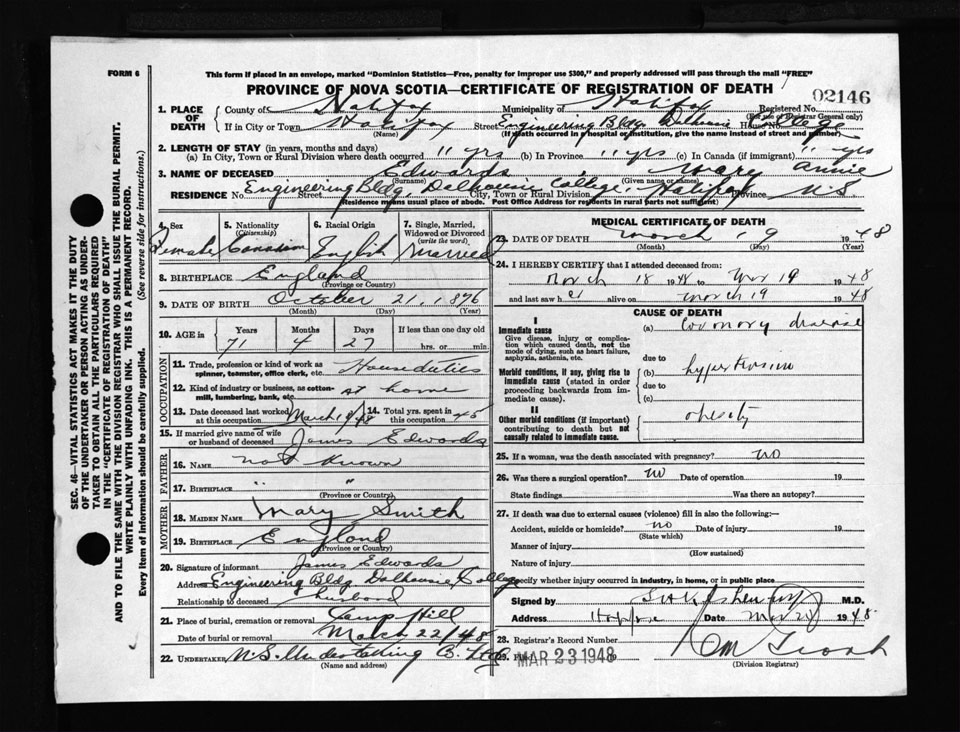 FORM 6
This form if placed in an envelope, marked "Dominion Statistics—Free, penalty for improper use $300," and properly addressed will pass through the mail "FREE"
PROVINCE OF NOVA SCOTIA—CERTIFICATE OF REGISTRATION OF DEATH
02146
1. PLACE OF DEATH
County of Halifax Municipality of Halifax Registered No.
(For use of Registrar General only)
If in City or Town Halifax Street Engineering Bldg. Dalhousie College House No.
(Name) (If death occurred in a hospital or institution, give the name instead of street and number)
2. LENGTH OF STAY (in years, months and days)
(a) In City, Town or Rural Division where death occurred 11 yrs (b) In Province 11 yrs (c) In Canada (if immigrant) " yrs
3. NAME OF DECEASED Edwards Mary Annie
(Surname) (Given name or names)
RESIDENCE No. Engineering Bldg. Dalhousie College, Halifax N.S
City, Town or Rural Division Province
Residence means usual place of abode. Post Office Address for residents in rural parts not sufficient)
4. Sex Female
5. Nationality (Citizenship) Canadian
6. Racial Origin English
7. Single, Married, Widowed or Divorced (write the word) Married
8. BIRTHPLACE England
(Province or Country)
9. DATE OF BIRTH October 21, 1876
(Month) (Day) (Year)
10. AGE in Years Months Days If less than one day old
71 4 27 hrs. or min.
OCCUPATION
11. Trade, profession or kind of work as spinner, teamster, office clerk, etc. House duties
12. Kind of industry or business, as cotton-mill, lumbering, bank, etc. at home
13. Date deceased last worked at this occupation March 19/48
14. Total yrs. spent in this occupation 45
15. If married give name of wife or husband of deceased James Edwards
FATHER
16. NAME not known
17. BIRTHPLACE " "
(Province or Country)
MOTHER
18. MAIDEN NAME Mary Smith
19. BIRTHPLACE England
(Province or Country)
20. Signature of informant James Edwards
Address Engineering Bldg. Dalhousie College
Relationship to deceased husband
21. Place of burial, cremation or removal Camp Hill
Date of burial or removal March 22/48
22. UNDERTAKER N.S. Undertaking Co. Ltd
(Name and address)
MEDICAL CERTIFICATE OF DEATH
23. DATE OF DEATH March 19 1948
(Month) (Day) (Year)
24. I HEREBY CERTIFY that I attended deceased from:
March 18 1948 to Mar 19 1948
and last saw her alive on March 19 1948
CAUSE OF DEATH
I
Immediate cause
Give disease, injury or complication which caused death, not the mode of dying, such as heart failure, asphyxia, asthenia, etc.
(a) Coronary disease
due to
Morbid conditions, if any, giving rise to immediate cause (stated in order proceeding backwards from immediate cause).
(b) hypertension
due to
(c)
II
Other morbid conditions (if important) contributing to death but not causally related to immediate cause.
obesity
25. If a woman, was the death associated with pregnancy? no
26. Was there a surgical operation? no Date of operation 19
State findings Was there an autopsy?
27. If death was due to external causes (violence) fill in also the following:—
Accident, suicide or homicide? no Date of injury 19
(State which)
Manner of injury
(How sustained)
Nature of injury
Specify whether injury occurred in industry, in home, or in public place
Signed by M.D.
Address Date Mar 1948
28. Registrar's Record Number
29. Filed MAR 23 1948
(Division Registrar)
SEC. 46—VITAL STATISTICS ACT MAKES IT THE DUTY
OF THE UNDERTAKER OR PERSON ACTING AS UNDER-
TAKER TO OBTAIN ALL THE PARTICULARS REQUIRED
IN THE "CERTIFICATE OF REGISTRATION OF DEATH"
AND TO FILE THE SAME WITH THE DIVISION REGISTRAR WHO SHALL ISSUE THE BURIAL PERMIT.
WRITE PLAINLY WITH UNFADING INK. THIS IS A PERMANENT RECORD.
Every item of information should be carefully supplied. (See reverse side for instructions.)